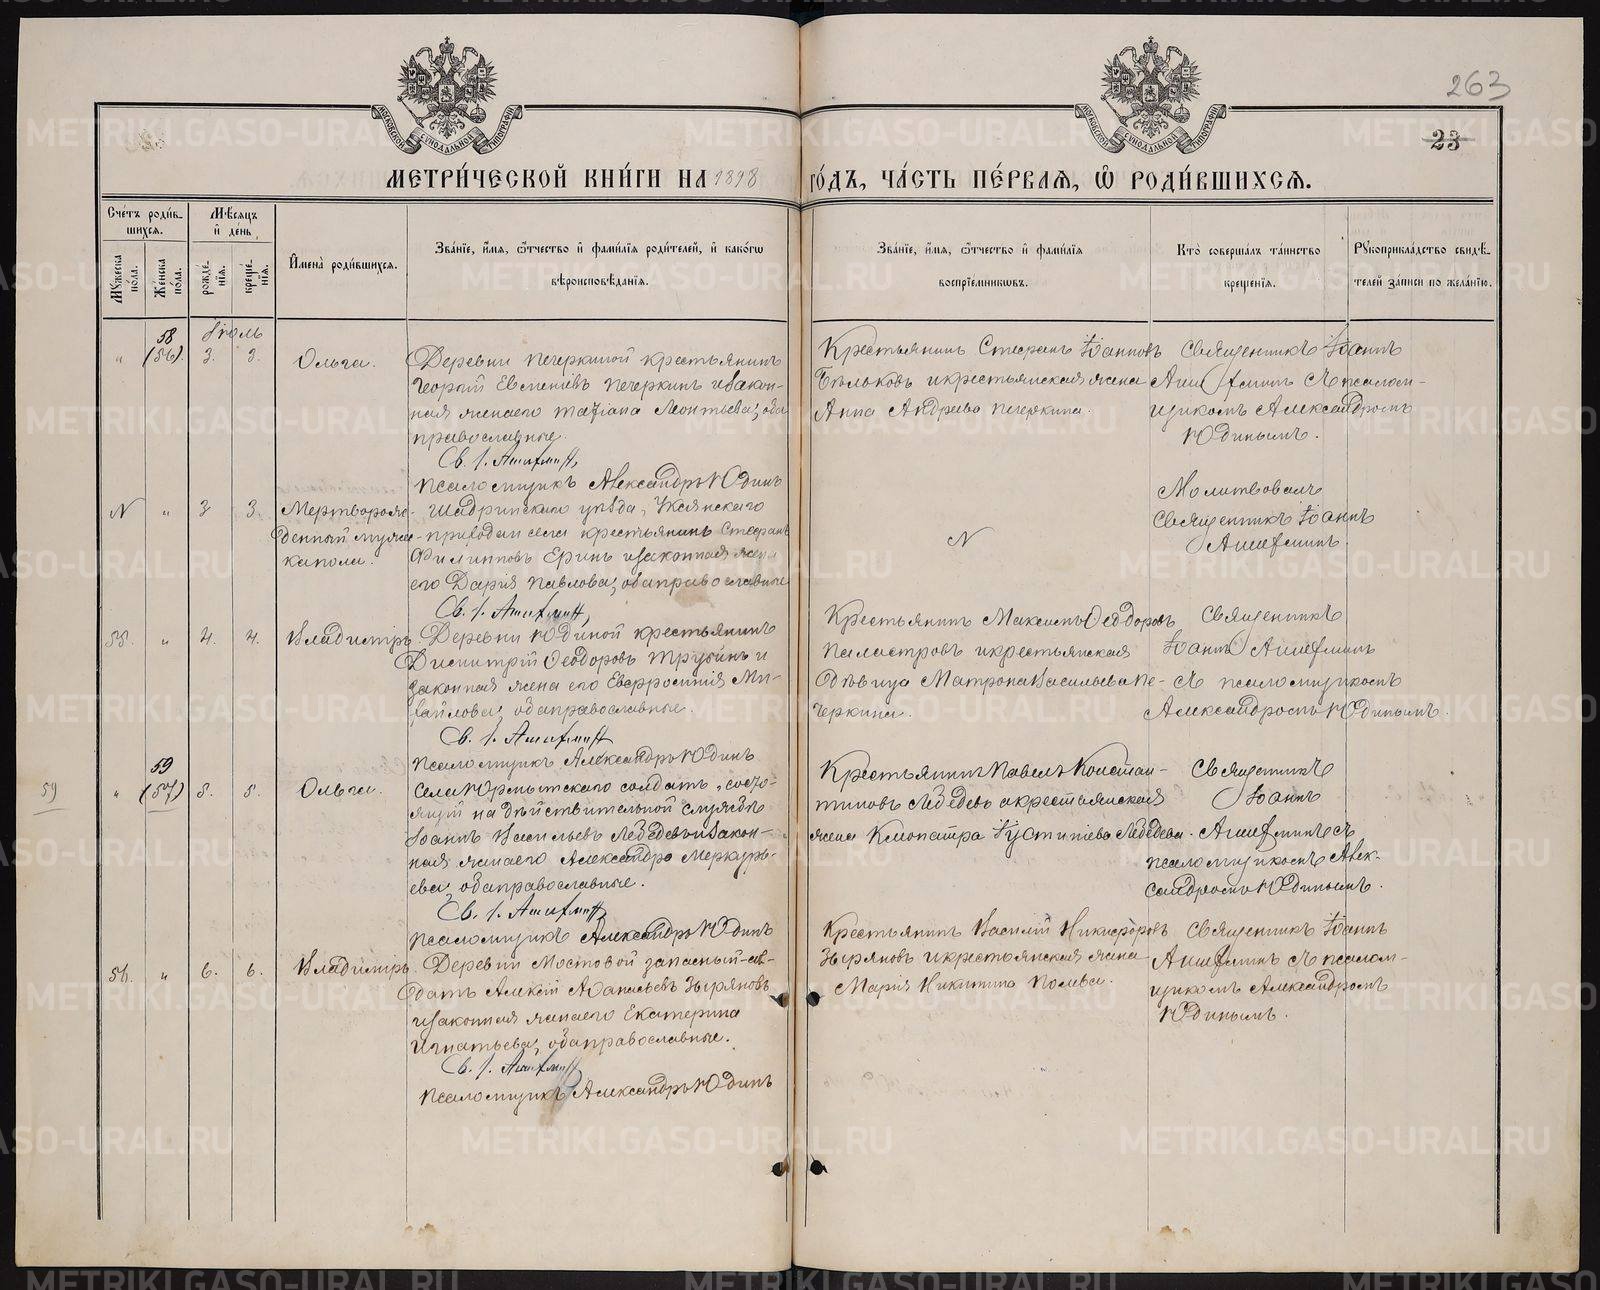 263
23
МОСКОВСКОЙ СУНОДАЛЬНОЙ ТИПОГРАФІИ
МОСКОВСКОЙ СУНОДАЛЬНОЙ ТИПОГРАФІИ
МЕТРИ́ЧЕСКОЙ КНИ́ГИ НА 1898 ГО́ДЪ, ЧА́СТЬ ПЕ́РВАЯ, Ѡ РОДИ́ВШИХСЯ.
Сче́тъ роди́в-
шихся.
Му́жеска по́ла.
Же́нска по́ла.
Мѣ́сяцъ
и де́нь
рожде́-
нія.
креще́-
нія.
Имена̀ роди́вшихся.
Зва́ніе, и́мя, о́тчество и фами́лія роди́телей, и како́гѡ
вѣроисповѣ́данія.
Зва́ніе, и́мя, о́тчество и фами́лія
воспріе́мниковъ.
Кто̀ соверша́лъ та́инство
креще́нія.
Рукоприкла́дство свидѣ́-
телей за́писи по жела́нію.
58
(56).
Іюль
3. 3.
Ольга.
Деревни Печеркиной крестьянинъ
Георгій Евменіевъ Печеркинъ и закон-
ная жена его Татіана Леонтьева, оба
православные.
Св. І.
Псаломщикъ Александръ Юдинъ
Крестьянинъ Стефанъ Іоанновъ
Бѣльковъ и крестьянская жена
Анна Андреева Печеркина.
Священникъ Іоаннъ
съ псалом-
щикомъ Александромъ
Юдинымъ.
N " 3 3.
Мертворож-
денный муже-
ка пола.
Шадринскаго уѣзда, Уксянскаго
села крестьянинъ Стефанъ
Филипповъ Еринъ и законная жена
его Дарія Павлова, оба православные
Св. І.
N
Молитвовалъ
Священникъ Іоаннъ
55. " 4. 4.
Владиміръ
Деревни Юдиной крестьянинъ
Димитрій Ѳеодоровъ Трубинъ и
законная жена его Евфросинія Ми-
хайлова, оба православные.
Св. І.
Псаломщикъ Александръ Юдинъ
Крестьянинъ Максимъ Ѳеодоровъ
и крестьянская
дѣвица Матрона Васильева Пе-
черкина.
Священникъ
Іоаннъ
съ псаломщикомъ
Александромъ Юдинымъ.
59
59
(57)
" 5. 5.
Ольга.
Села Юрмытскаго солдатъ, состо-
ящій на дѣйствительной службѣ
Іоаннъ Васильевъ Лебедевъ и закон-
ная жена его Александра Меркурь-
ева, оба православные.
Св. І.
Псаломщикъ Александръ Юдинъ
Крестьянинъ Павелъ Констан-
тиновъ Лебедевъ и крестьянская
жена Клеопатра Іустиніева Лебедева.
Священникъ
Іоаннъ
съ
псаломщикомъ Алек-
сандромъ Юдинымъ.
56. " 6. 6.
Владиміръ
Деревни Мостовой запасный сол-
датъ Алексій Аѳанасьевъ Зыряновъ
и законная жена его Екатерина
Игнатьева, оба православные.
Св. І.
Псаломщикъ Александръ Юдинъ
Крестьянинъ Василій Никифоровъ
Зыряновъ и крестьянская жена
Марія Никитина
Священникъ Іоаннъ
съ псалом-
щикомъ Александромъ
Юдинымъ.
METRIKI.GASO-URAL.RU